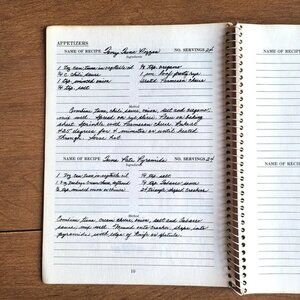 APPETIZERS
NAME OF RECIPE Teeny Tuna Pizzas NO. SERVINGS 24
Ingredients
1 7oz can tuna in vegetable oil ¼ tsp. oregano
¼ C. chili sauce 1 loaf party rye
1 T. minced onion Grated Parmesan Cheese
¼ tsp. salt
Method
Combine tuna, chili sauce, onion, salt and oregano;
mix well. Spread on rye slices. Place on baking
sheet. Sprinkle with Parmesan cheese. Bake at
425 degrees for 8 minutes or until heated
through. Serve hot.
NAME OF RECIPE Tuna Pate Pyramids NO. SERVINGS 24
Ingredients
1 7oz can tuna in vegetable oil ¼ tsp. salt
cream cheese, softened ¼ tsp. Tabasco sauce
2 T. minced onion 24 crackers
Method
Combine tuna, cream cheese, onion, salt and Tabasco
sauce; mix well. Mound onto crackers, shape into
pyramids with edge of knife or spatula.
10
NAME OF RECIPE
NAME OF RECIPE